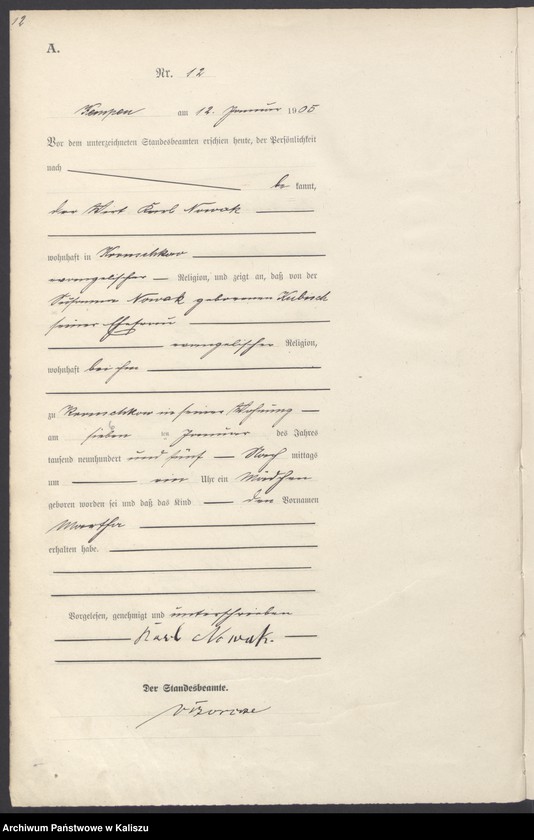 12
A.
Nr. 12
Kempen am 12. Januar 1905
Vor dem unterzeichneten Standesbeamten erschien heute, der Persönlichkeit
nach
be kannt,
der Wirt Karl Nowak
wohnhaft in
evangelischer Religion, und zeigt an, daß von der
Susanna Nowak geborenen Kubsch
seiner Ehefrau
evangelischer Religion,
wohnhaft bei ihm
zu in seiner Wohnung
am sieben ten Januar des Jahres
tausend neunhundert und fünf Nach mittags
um ein Uhr ein Mädchen
geboren worden sei und daß das Kind den Vornamen
Martha
erhalten habe.
Vorgelesen, genehmigt und unterschrieben
Karl Nowak.
Der Standesbeamte.
Archiwum Państwowe w Kaliszu